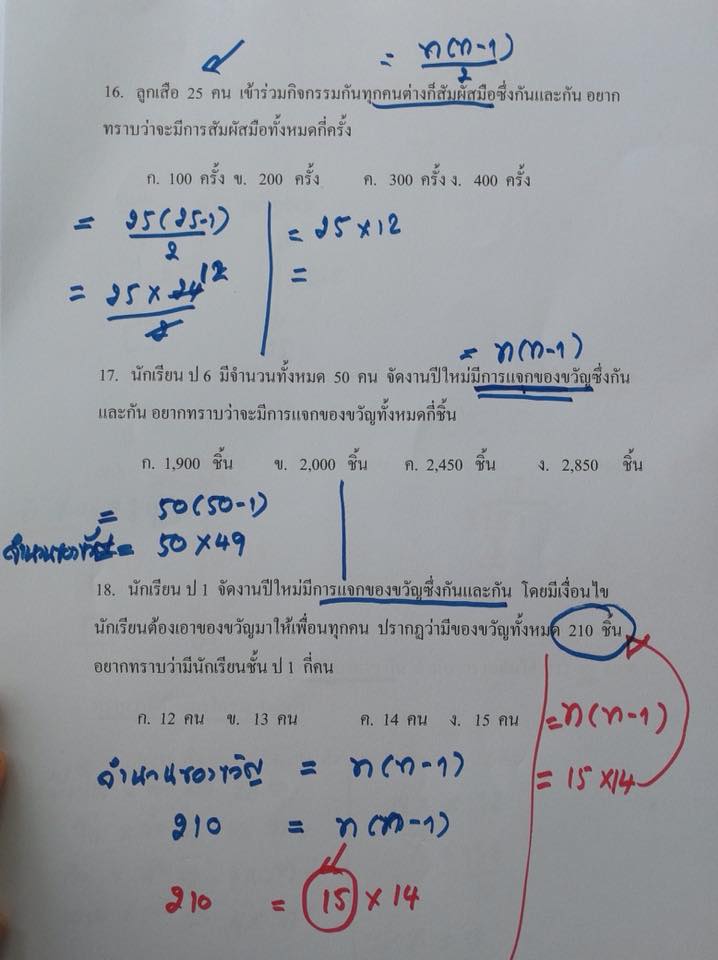 = n(n-1)/2
16. ลูกเสือ 25 คน เข้าร่วมกิจกรรมกันทุกคนต่างก็สัมผัสมือซึ่งกันและกัน อยาก
ทราบว่าจะมีการสัมผัสมือทั้งหมดกี่ครั้ง
ก. 100 ครั้ง ข. 200 ครั้ง ค. 300 ครั้ง ง. 400 ครั้ง
= 25(25-1)/2
= 25 × 24/2 12
= 25 × 12
=
= n(n-1)
17. นักเรียน ป 6 มีจำนวนทั้งหมด 50 คน จัดงานปีใหม่มีการแจกของขวัญซึ่งกัน
และกัน อยากทราบว่าจะมีการแจกของขวัญทั้งหมดกี่ชิ้น
ก. 1,900 ชิ้น ข. 2,000 ชิ้น ค. 2,450 ชิ้น ง. 2,850 ชิ้น
= 50(50-1)
จำนวนของขวัญ = 50 × 49
18. นักเรียน ป 1 จัดงานปีใหม่มีการแจกของขวัญซึ่งกันและกัน โดยมีเงื่อนไข
นักเรียนต้องเอาของขวัญมาให้เพื่อนทุกคน ปรากฏว่ามีของขวัญทั้งหมด 210 ชิ้น
อยากทราบว่ามีนักเรียนชั้น ป 1 กี่คน
ก. 12 คน ข. 13 คน ค. 14 คน ง. 15 คน
จำนวนของขวัญ = n(n-1)
210 = n(n-1)
210 = 15 × 14
= n(n-1)
= 15 × 14